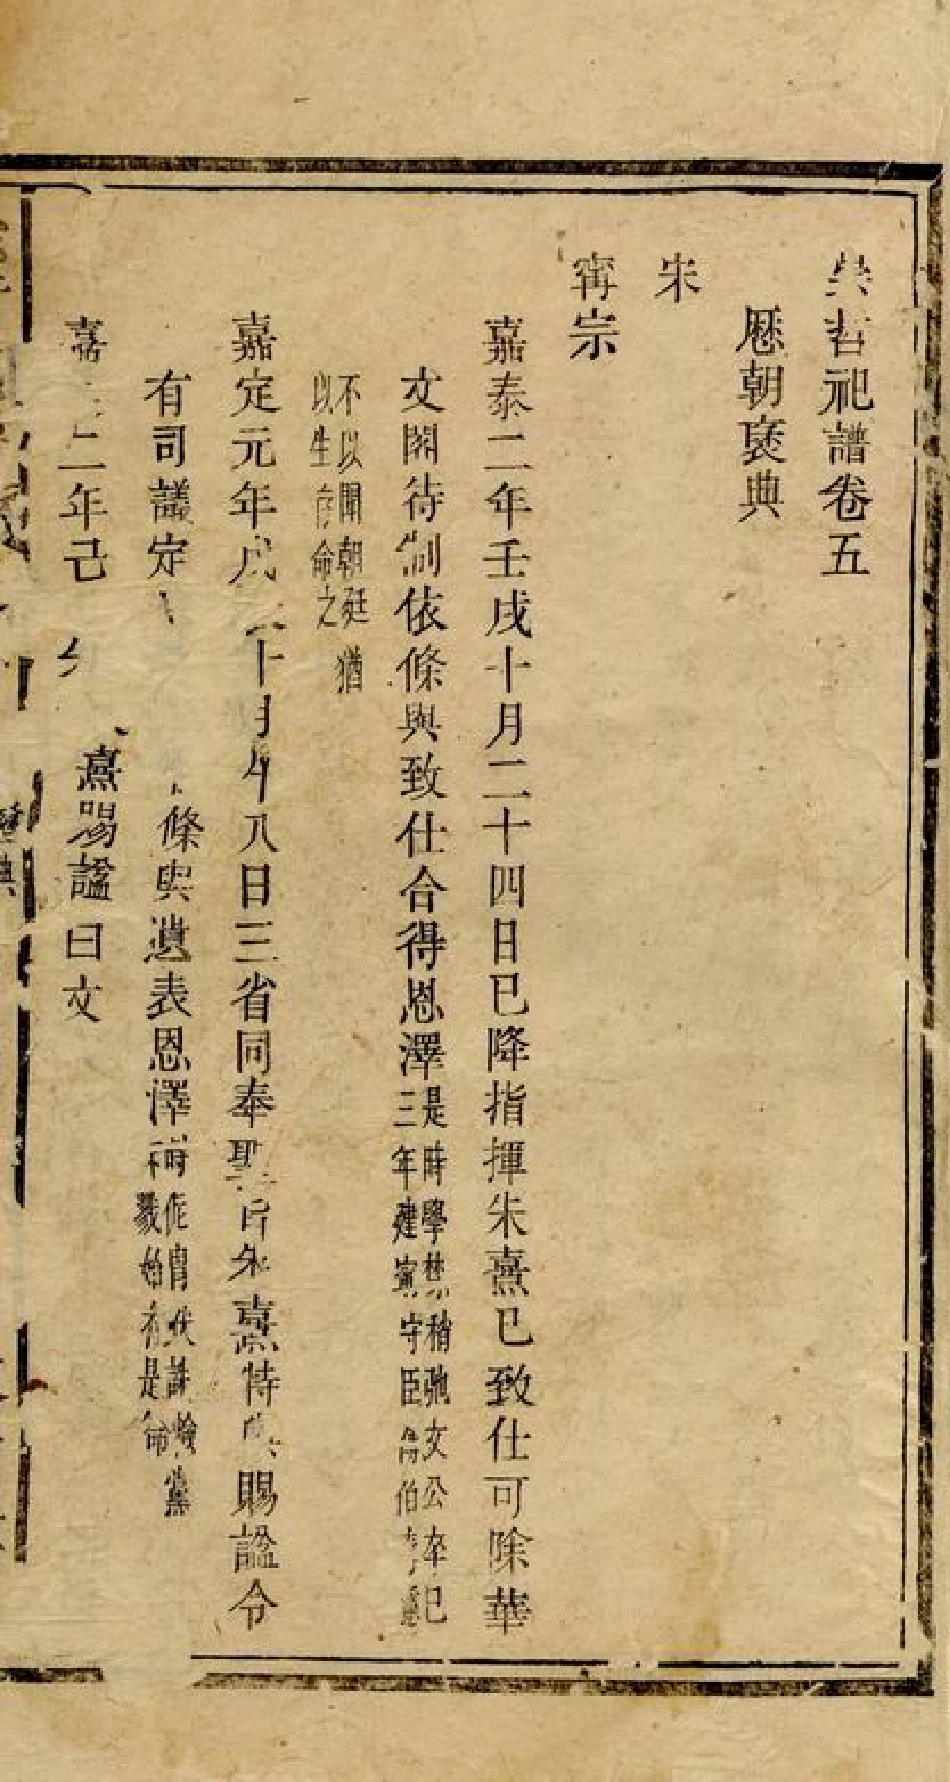 哲祀譜卷五
歷朝褒典
宋
甯宗
嘉泰二年壬戌十月二十四日已降指揮朱熹已致仕可除華
文閣待制依條與致仕合得恩澤是時學禁稍弛文公卒已
三年建寧守臣傅伯壽
不以聞朝廷猶
以生存命之
嘉定元年戊十月八日三省同奉聖旨朱熹特賜諡令
有司議定條與遺表恩澤時侂胄伏誅憸黨
不數始有是命
嘉二年己熹賜諡曰文